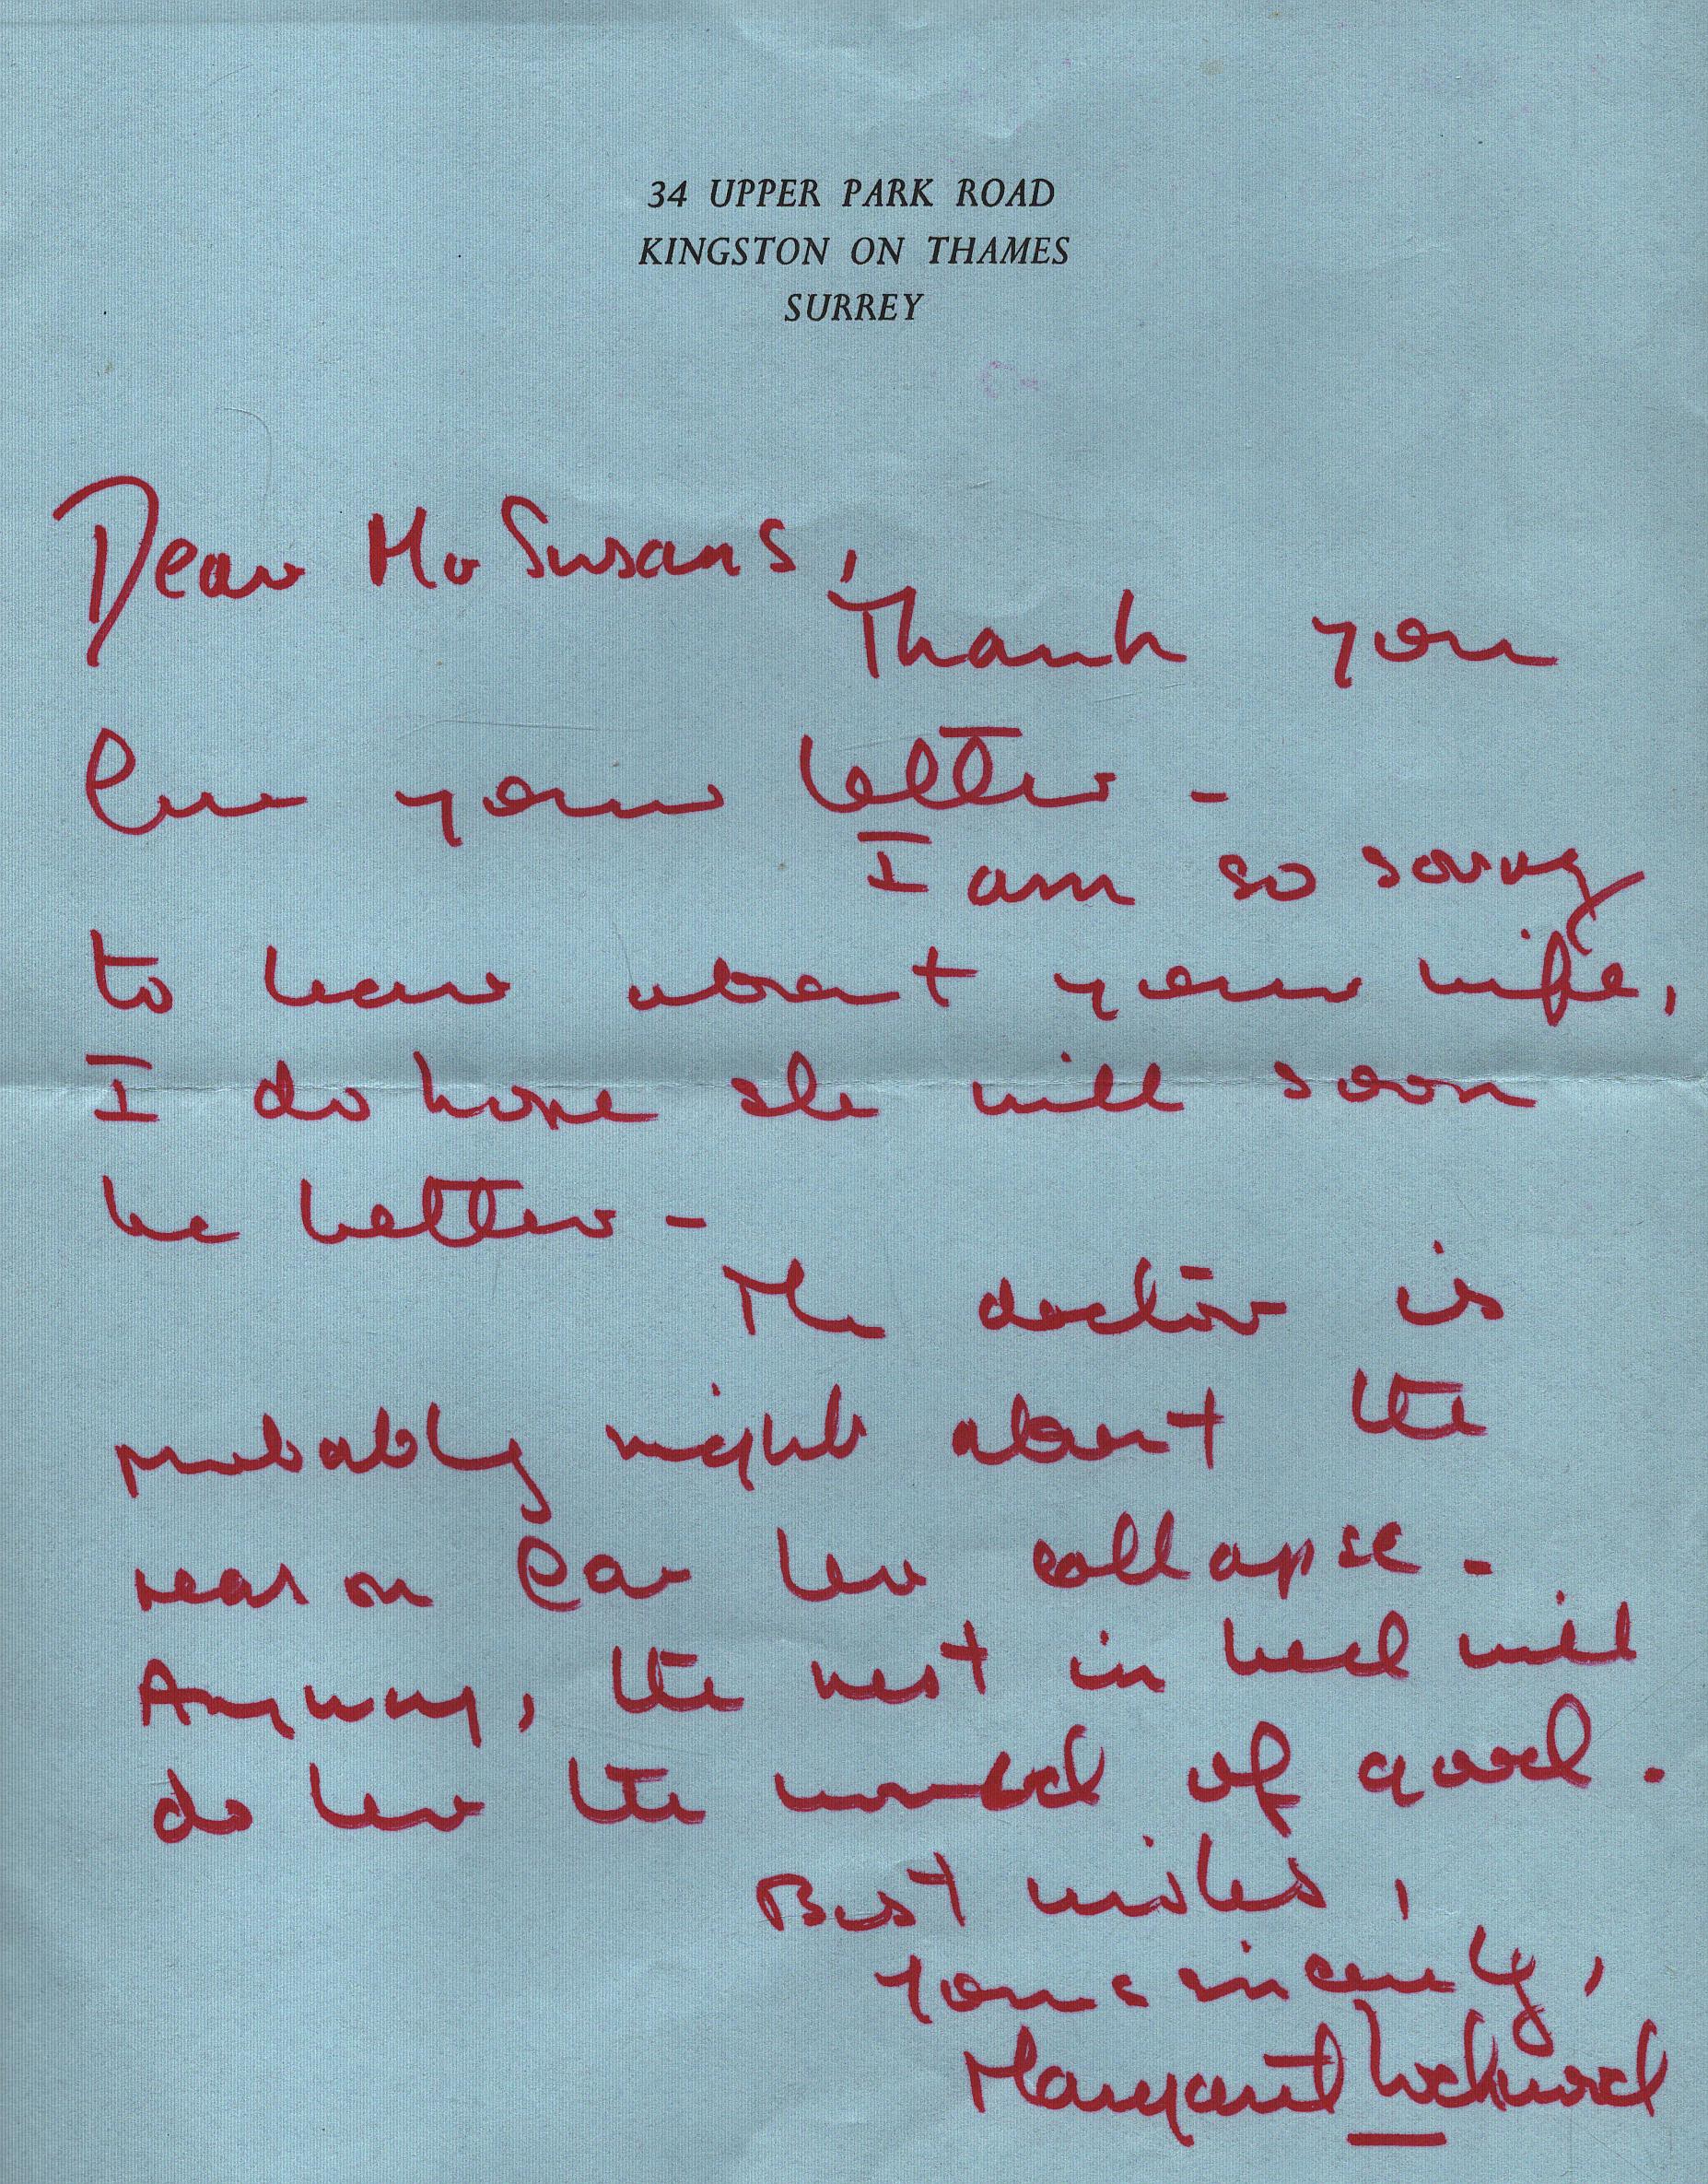 34 UPPER PARK ROAD
KINGSTON ON THAMES
SURREY
Dear Mr Susans,
Thank you
for your letter -
I am so sorry
to hear about your wife,
I do hope she will soon
be better -
The doctor is
probably right about the
reason for her collapse -
Anyway, the rest in bed will
do her the world of good.
Best wishes,
Yours sincerely,
Margaret Lockwood